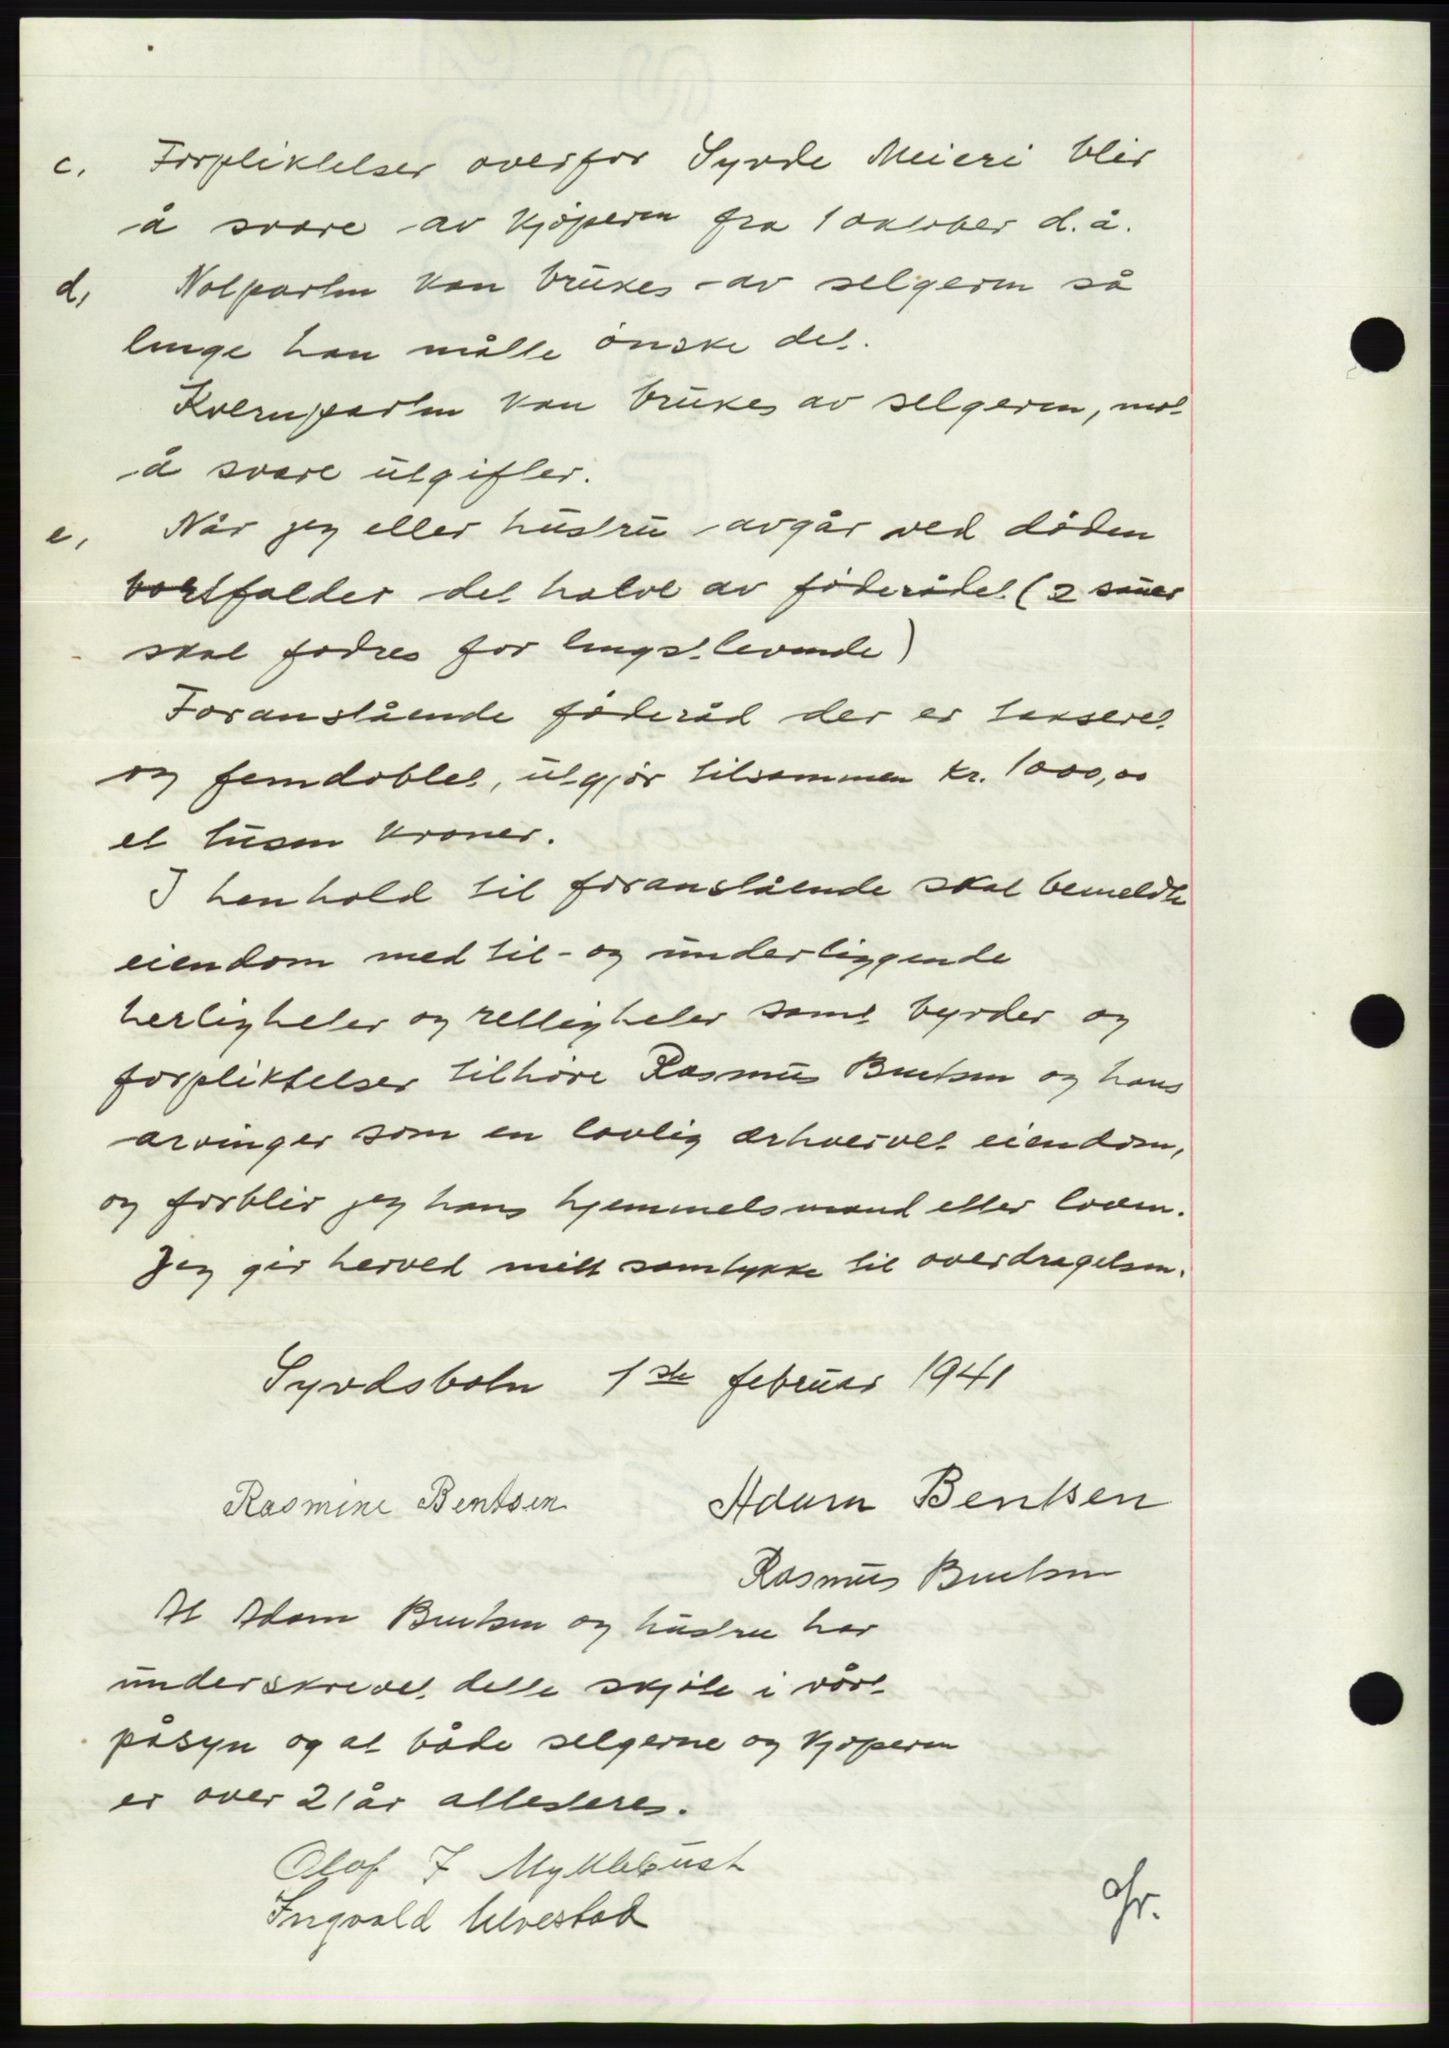 c. Forpliktelser overfor Syvde Meieri blir
å svare av kjøperen fra 1 oktober d.å.
d, Notparten kan brukes av selgeren så
lenge han måtte ønske det.
Kvernparten kan brukes av selgeren, mot
å svare utgifter.
e, Når jeg eller hustru avgår ved døden
bortfalder det halve av føderådet (2 sauer
skal fødres for lengstlevende)
Foranstående føderåd der er taksert
og femdoblet, utgjør tilsammen kr. 1000,00
et tusen kroner.
I henhold til foranstående skal bemeldte
eiendom med til- og underliggende
herligheter og rettigheter samt byrder og
forpliktelser tilhøre Rasmus Bentsen og hans
arvinger som en lovlig erhvervet eiendom,
og forblir jeg hans hjemmelsmand etter loven.
Jeg gir herved mitt samtykke til overdragelsen.
Syvdsbotn 1ste februar 1941
Rasmine Bentsen Adam Bentsen
Rasmus Bentsen
At Adam Bentsen og hustru har
underskrevet dette skjøte i vårt
påsyn og at både selgerne og kjøperen
er over 21 år attesteres.
Olaf J Myklebust
Ingvald Ulvestad